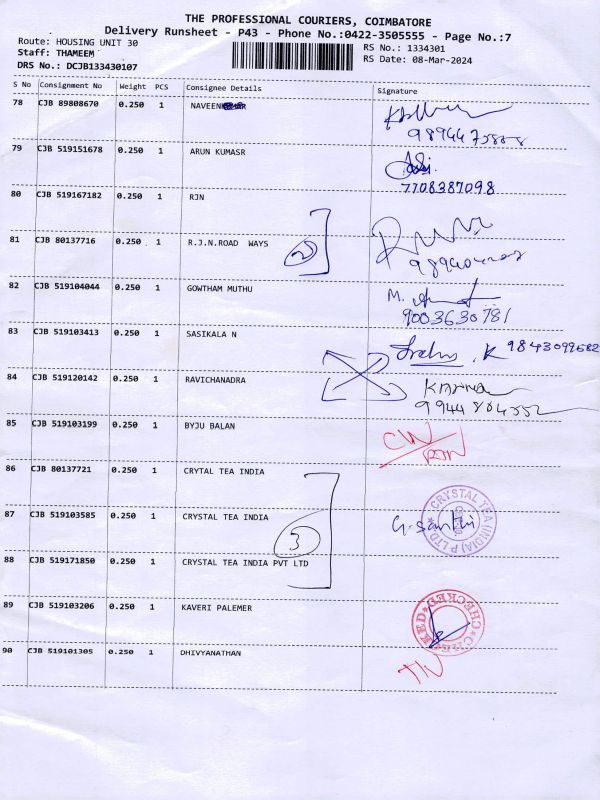 THE PROFESSIONAL COURIERS, COIMBATORE
Delivery Runsheet - P43 - Phone No.:0422-3505555 - Page No.:7
Route: HOUSING UNIT 30
RS No.: 1334301
Staff: THAMEEM
RS Date: 08-Mar-2024
DRS No.: DCJB133430107
S No Consignment No Weight PCS Consignee Details Signature
78 CJB 89808670 0.250 1 NAVEEN
79 CJB 519151678 0.250 1 ARUN KUMASR
7708387098
80 CJB 519167182 0.250 1 RJN
81 CJB 80137716 0.250 1 R.J.N.ROAD WAYS
2
82 CJB 519104044 0.250 1 GOWTHAM MUTHU M.
9003630781
83 CJB 519103413 0.250 1 SASIKALA N K 9843099682
84 CJB 519120142 0.250 1 RAVICHANADRA
85 CJB 519103199 0.250 1 BYJU BALAN
86 CJB 80137721 0.250 1 CRYTAL TEA INDIA
87 CJB 519103585 0.250 1 CRYSTAL TEA INDIA G. Santhi
CRYSTAL TEA (INDIA) P LTD
3
88 CJB 519171850 0.250 1 CRYSTAL TEA INDIA PVT LTD
89 CJB 519103206 0.250 1 KAVERI PALEMER
CHECKED CHECKED
90 CJB 519101305 0.250 1 DHIVYANATHAN